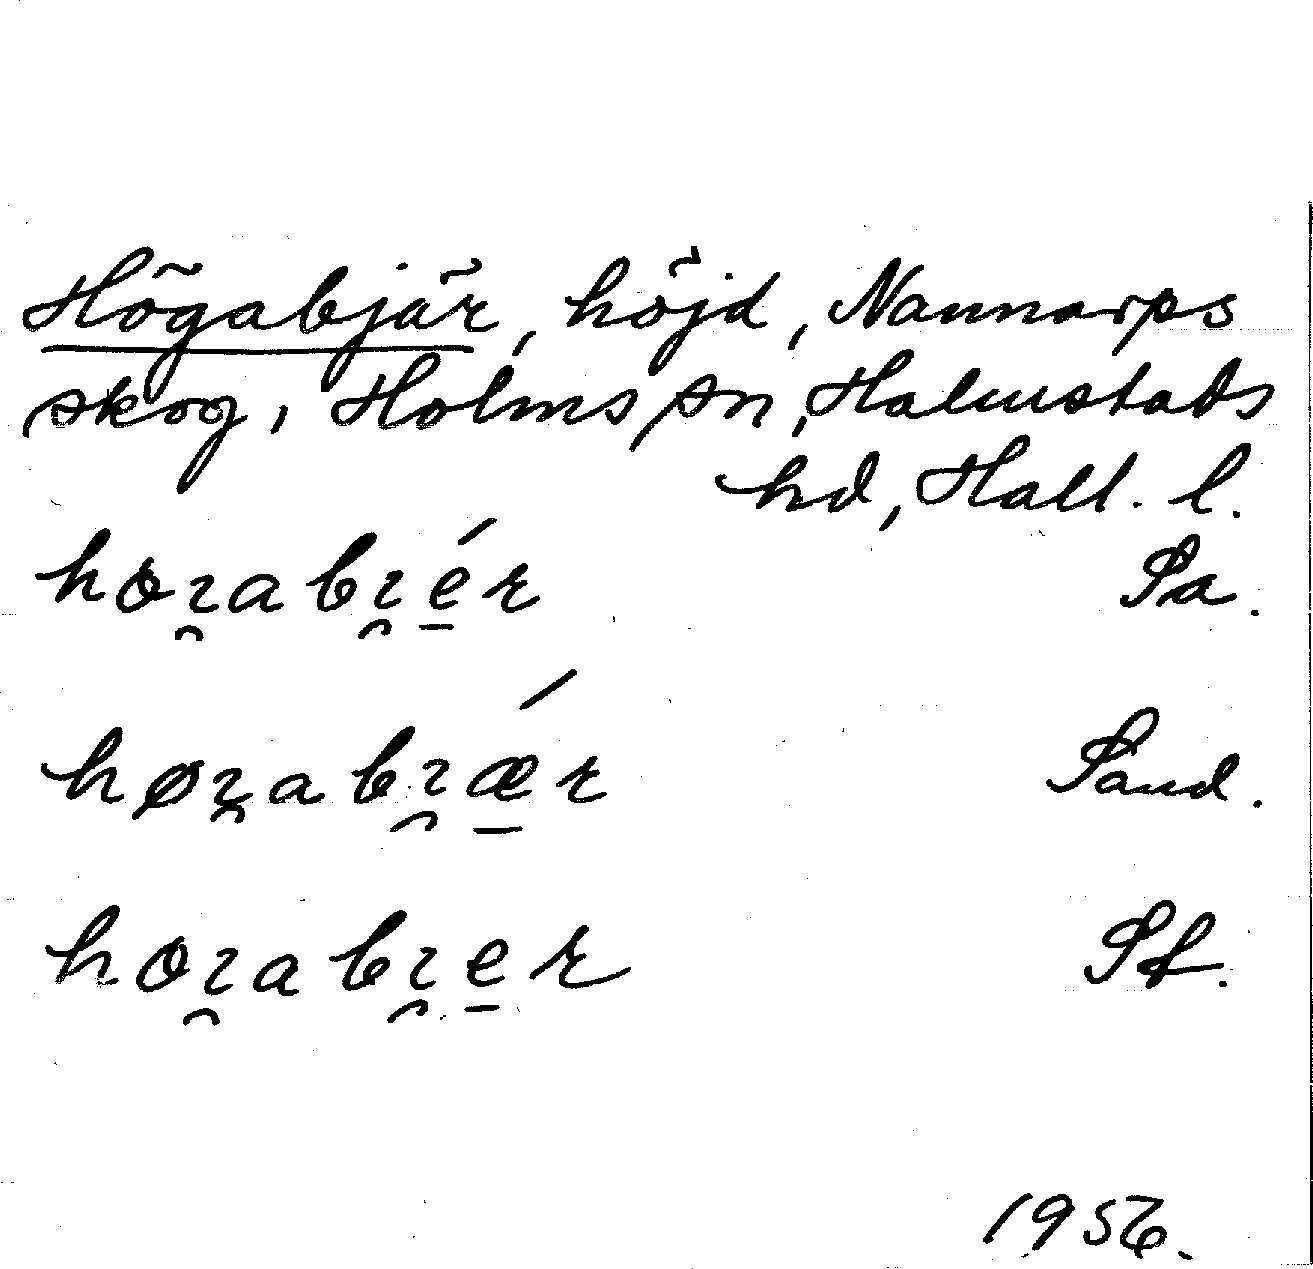 Högabjär, höjd, Nannarps
skog, Holms sn, Halmstads
hd, Hall. l.
hoɿ̯abɿ̯é̲r Pa.
høɿ̯abɿ̯ǽ̲r Sand.
hoɿ̯abɿ̯e̲r
1956.